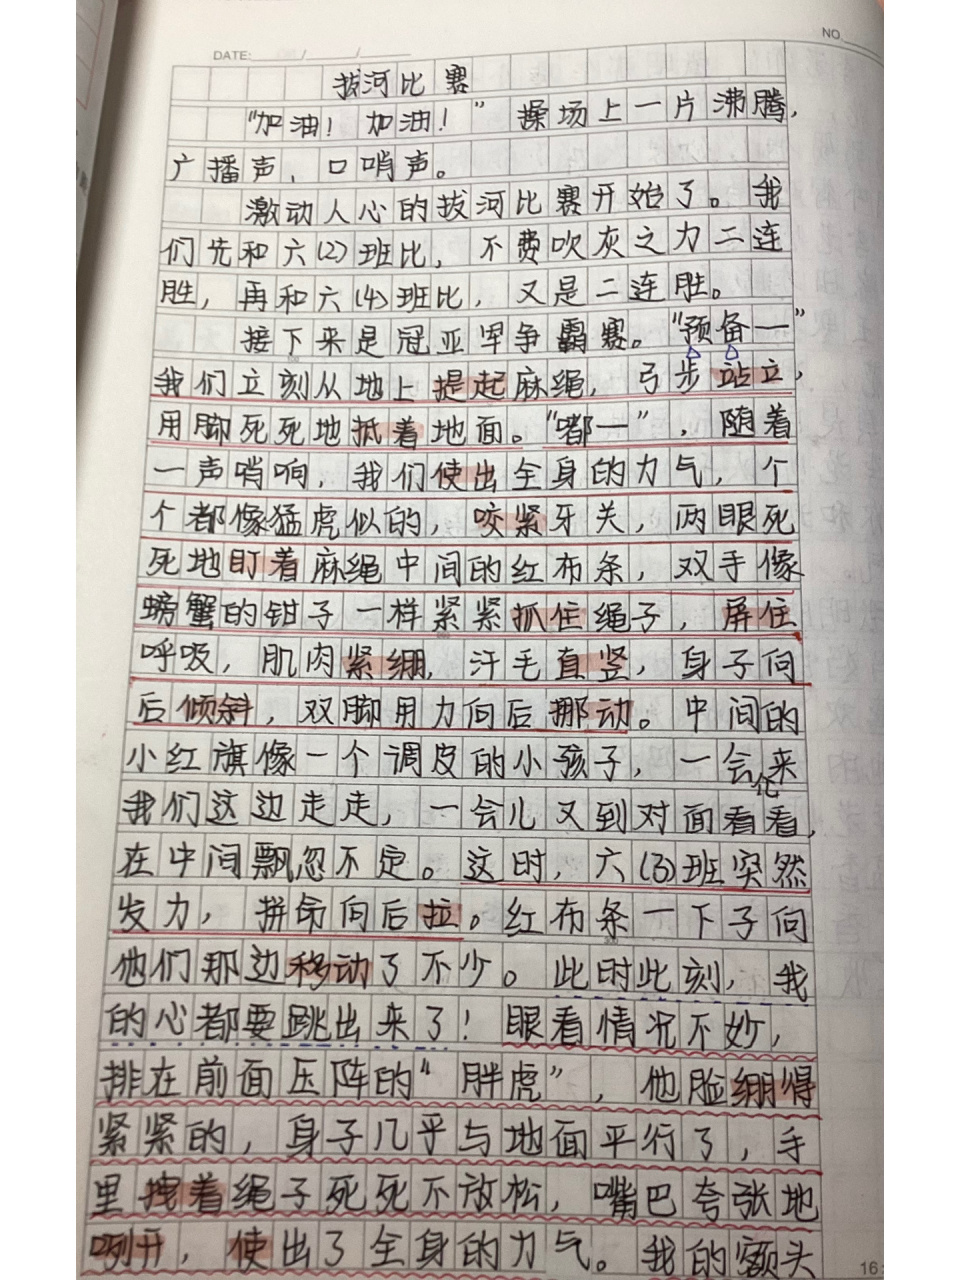 NO.
DATE: / /
拔河比赛
“加油！加油！”操场上一片沸腾，
广播声、口哨声。
激动人心的拔河比赛开始了。我
们先和六(2)班比，不费吹灰之力二连
胜，再和六(4)班比，又是二连胜。
接下来是冠亚军争霸赛。“预备一”
我们立刻从地上提起麻绳，弓步站立，
用脚死死地抵着地面。“嘟一”，随着
一声哨响，我们使出全身的力气，个
个都像猛虎似的，咬紧牙关，两眼死
死地盯着麻绳中间的红布条，双手像
螃蟹的钳子一样紧紧抓住绳子，屏住
呼吸，肌肉紧绷，汗毛直竖，身子向
后倾斜，双脚用力向后挪动。中间的
小红旗像一个调皮的小孩子，一会来
我们这边走走，一会儿又到对面看看，
在中间飘忽不定。这时，六(3)班突然
发力，拼命向后拉。红布条一下子向
他们那边移动了不少。此时此刻，我
的心都要跳出来了！眼看情况不妙，
排在前面压阵的“胖虎”，他脸绷得
紧紧的，身子几乎与地面平行了，手
里拽着绳子死死不放松，嘴巴夸张地
咧开，使出了全身的力气。我的额头
16